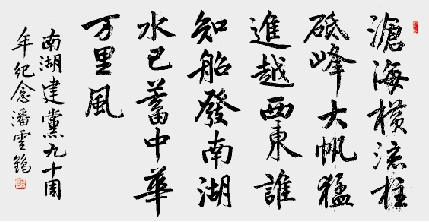 滄海橫流柱
砥峰大帆猛
進越西東誰
知船發南湖
水已蓄中華
萬里風
南湖建黨九十周
年紀念潘雲鶴